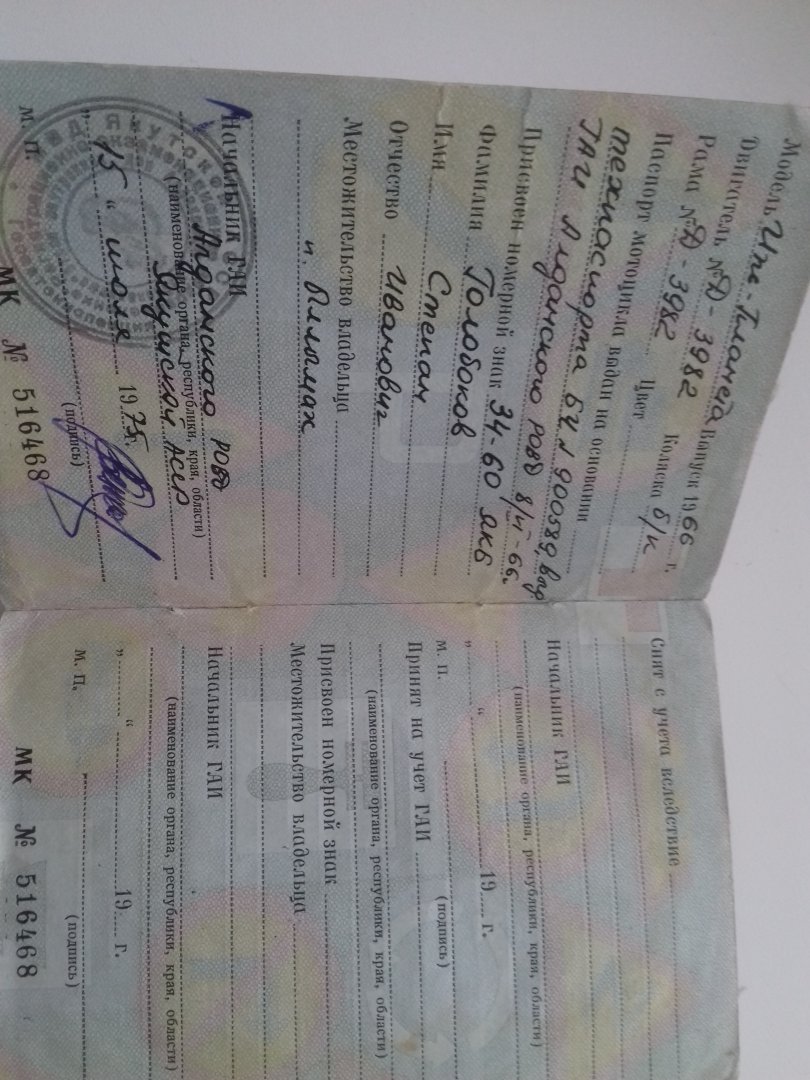 Модель Иж-Планета Выпуск 1966 г.
Двигатель № Д-3982
Рама № Д-3982 Коляска б/к
Паспорт мотоцикла выдан на основании Цвет
техпаспорта БУ № 900589, выд
ГАИ Алданского РОВД 8/VI-66.
Присвоен номерной знак 34-60 ЯКБ
Фамилия Голобоков
Имя Степан
Отчество Иванович
Местожительство владельца
п. Ыллымах
Начальник ГАИ
Алданского РОВД
(наименование органа, республики, края, области)
Якутской АССР
„15“ июля 1975 г.
М. П. (подпись)
МК № 516468
Снят с учета вследствие
Начальник ГАИ
(наименование органа, республики, края, области)
„ “ 19 г.
М. П. (подпись)
Принят на учет ГАИ
(наименование органа, республики, края, области)
Присвоен номерной знак
Местожительство владельца
Начальник ГАИ
(наименование органа, республики, края, области)
„ “ 19 г.
М. П. (подпись)
МК № 516468